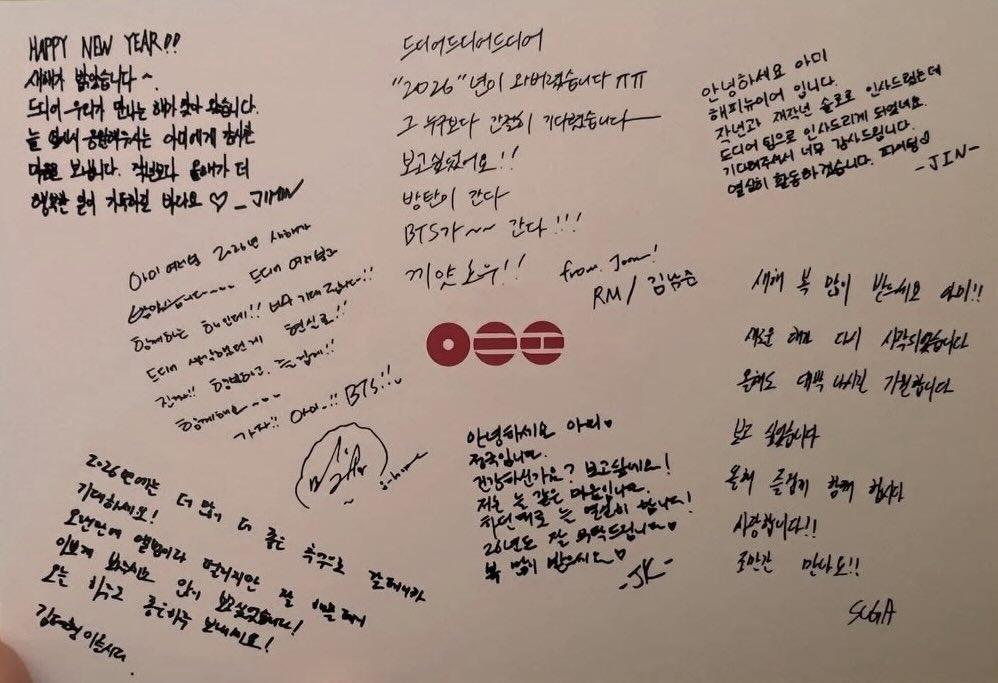 HAPPY NEW YEAR!!
새해가 밝았습니다~
드디어 우리가 만나는 해가 찾아 왔습니다.
늘 옆에서 응원해주시는 아미에게 감사한
마음을 보냅니다. 작년보다 올해가 더
행복한 일이 가득하길 바라요 ♡ - JIMIN
드디어드디어드디어
"2026"년이 와버렸습니다 ㅠㅠ
그 누구보다 간절히 기다렸습니다
보고싶었어요!!
방탄이 간다
BTS가~~ 간다!!!
끼얏호우!!
from. Joon!
RM / 김남준
안녕하세요 아미
해피뉴이어 입니다.
작년과 재작년 솔로로 인사드렸는데
드디어 팀으로 인사드리게 되었네요.
기다려주셔서 너무 감사드립니다.
열심히 활동하겠습니다. 파이팅♡
-JIN-
아미 여러분 2026년 새해가
밝았습니다.... 드디어 여러분과
함께하는 해인데!! 너무 기대됩니다!!
드디어 생각했던게 현실로!!
진짜!! 행복하고, 즐겁게!!
함께해요....
가자!! 아미..!! BTS!!
j-hope
새해 복 많이 받으세요 아미!!
새로운 해가 다시 시작되었습니다
올해도 대박 나시길 기원합니다
보고 싶었습니다
올해 즐겁게 함께 합시다
사랑합니다!!
조만간 만나요!!
SUGA
2026년에는 더 많이 더 좋은 추억으로 갈테니까
기대하세요!
오랜만에 앨범이라 떨리지만 잘
이쁘게 봐주시요 많이 보고싶었습니다!
오늘 하루도 좋은하루 보내세요!
김태형 이올시다.
안녕하세요 아미♥
정국입니다.
건강하신가요? 보고싶네요!
저는 늘 같은 마음입니다.
하던대로 늘 열심히 합니다!
26년도 잘 부탁드립니다♥
복 많이 받으세요♡
-JK-